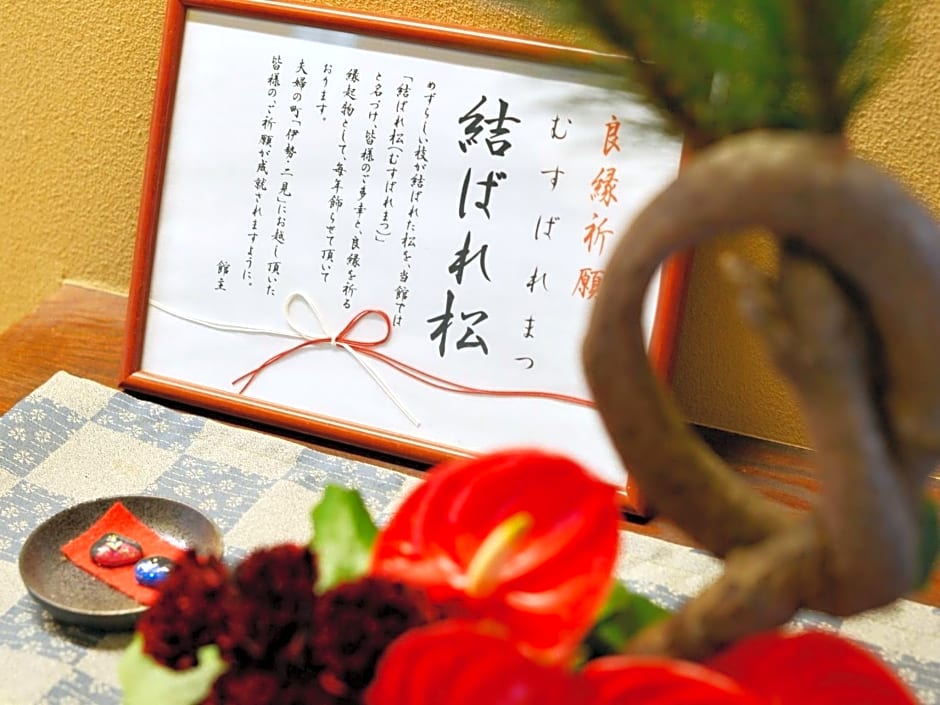 良縁祈願
むすばれまつ
結ばれ松
めずらしい枝が結ばれた松を、当館では
「結ばれ松(むすばれまつ)」
と名づけ、皆様のご多幸と、良縁を祈る
縁起物として、毎年飾らせて頂いて
おります。
夫婦の町「伊勢・二見」にお越し頂いた
皆様の、ご祈願が成就されますように。
館主